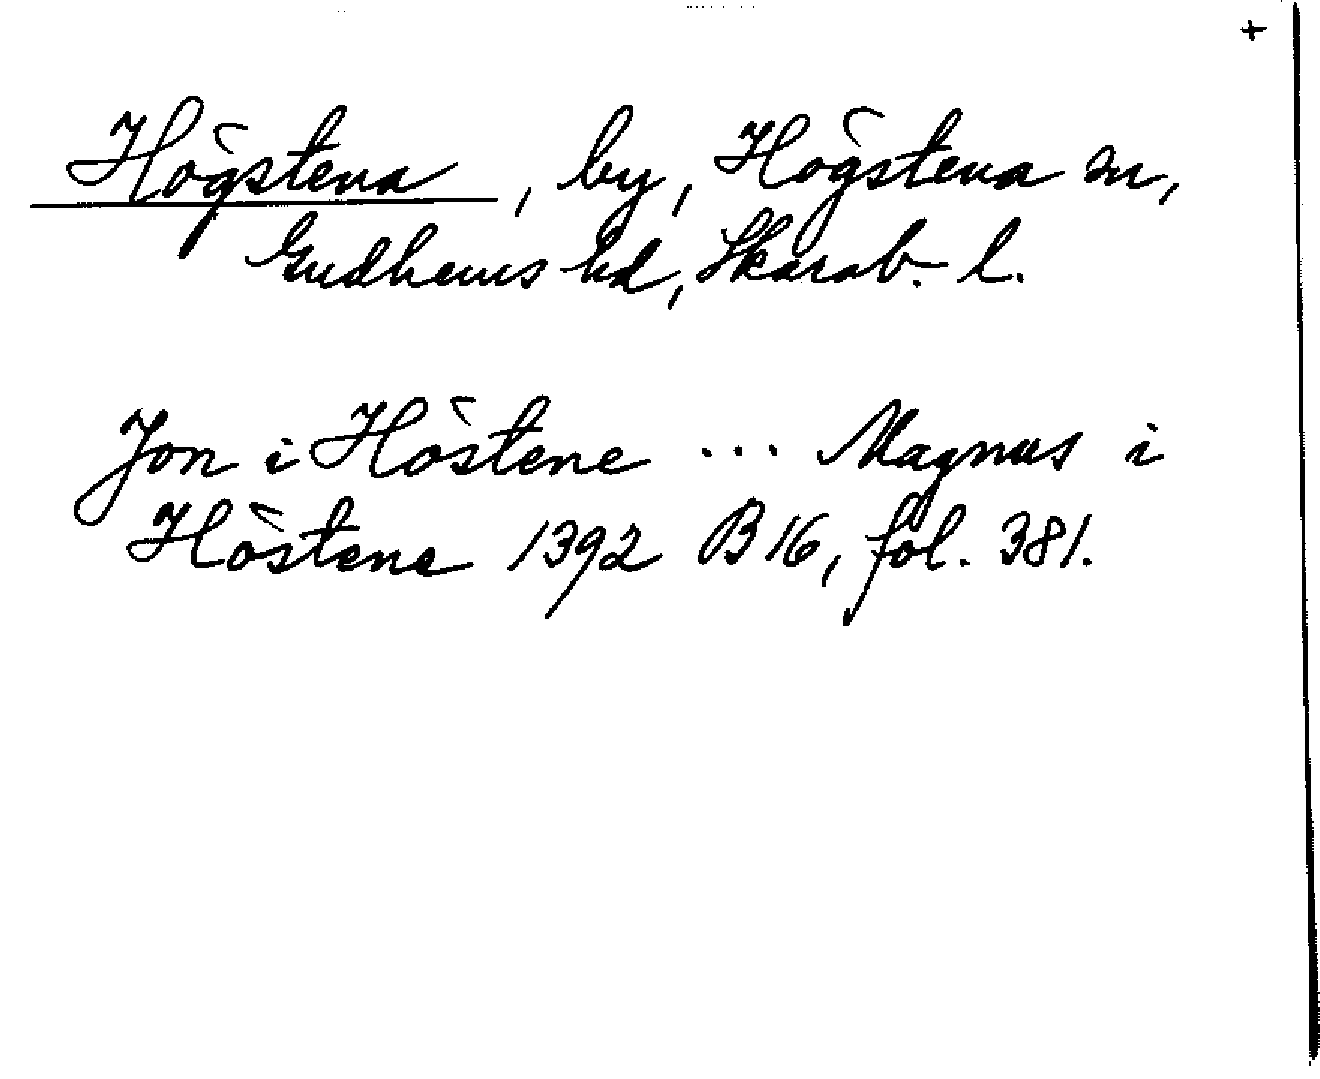 +
Högstena, by, Högstena sn,
Gudhems hd, Skarab. l.
Jon i Höstene ... Magnus i
Höstene 1392 B 16, fol. 381.